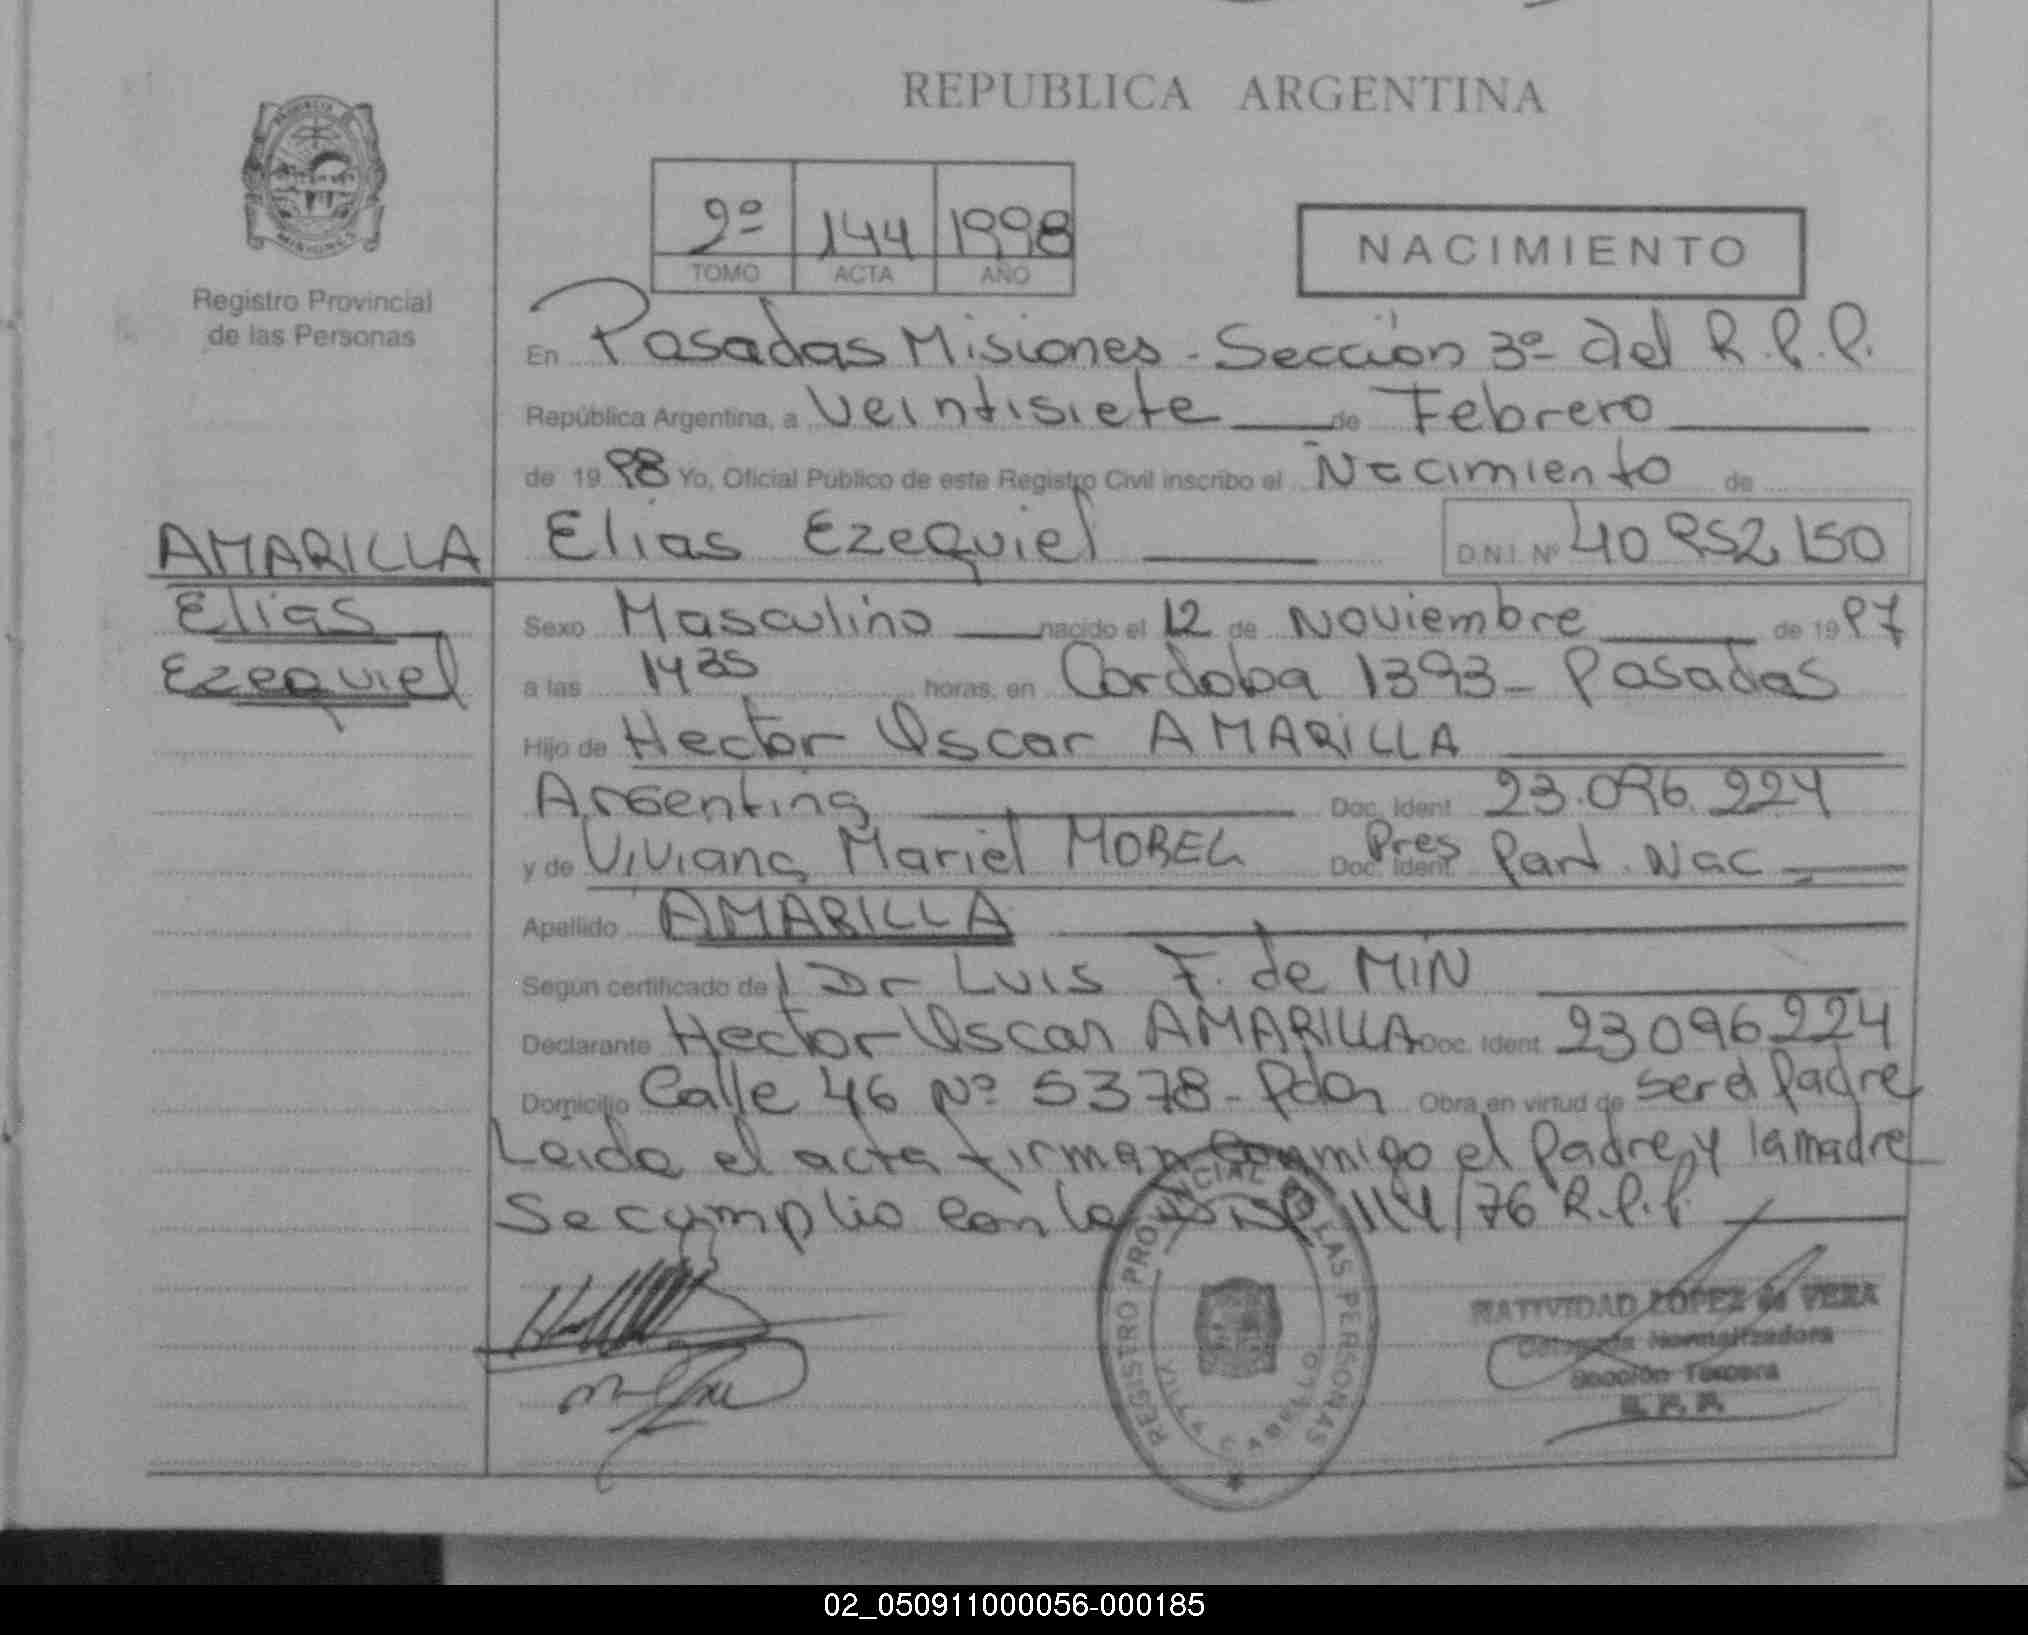 REPUBLICA ARGENTINA
PROVINCIA
MISIONES
Registro Provincial
de las Personas
2º 144 1998
TOMO ACTA AÑO
NACIMIENTO
En Posadas Misiones - Sección 3º del R.P.P.
República Argentina, a Veintisiete de Febrero
de 19 98 Yo, Oficial Público de este Registro Civil inscribo el Nacimiento de
AMARILLA Elias Ezequiel D.N.I. Nº 40 952 150
Elias
Ezequiel
Sexo Masculino nacido el 12 de Noviembre de 19 97
a las 14 35 horas, en Cordoba 1393 - Posadas
Hijo de Hector Oscar AMARILLA
Argentina Doc. Ident 23.096.224
y de Viviana Mariel MOREL Doc. Ident Pres Part. Nac
Apellido AMARILLA
Según certificado de l Dr Luis F. de MIN
Declarante Hector Oscar AMARILLA Doc. Ident. 23 096 224
Domicilio Calle 46 Nº 5378 - Pdas Obra en virtud de ser el Padre
Leida el acta firman conmigo el Padre y la madre
Se cumplio con la Disp 114/76 R.P.P.
REGISTRO PROVINCIAL DE LAS PERSONAS
VILLA CABELLO
NATIVIDAD LOPEZ de VERA
Delegada Normalizadora
Sección Tercera
R.P.P.
02_050911000056-000185